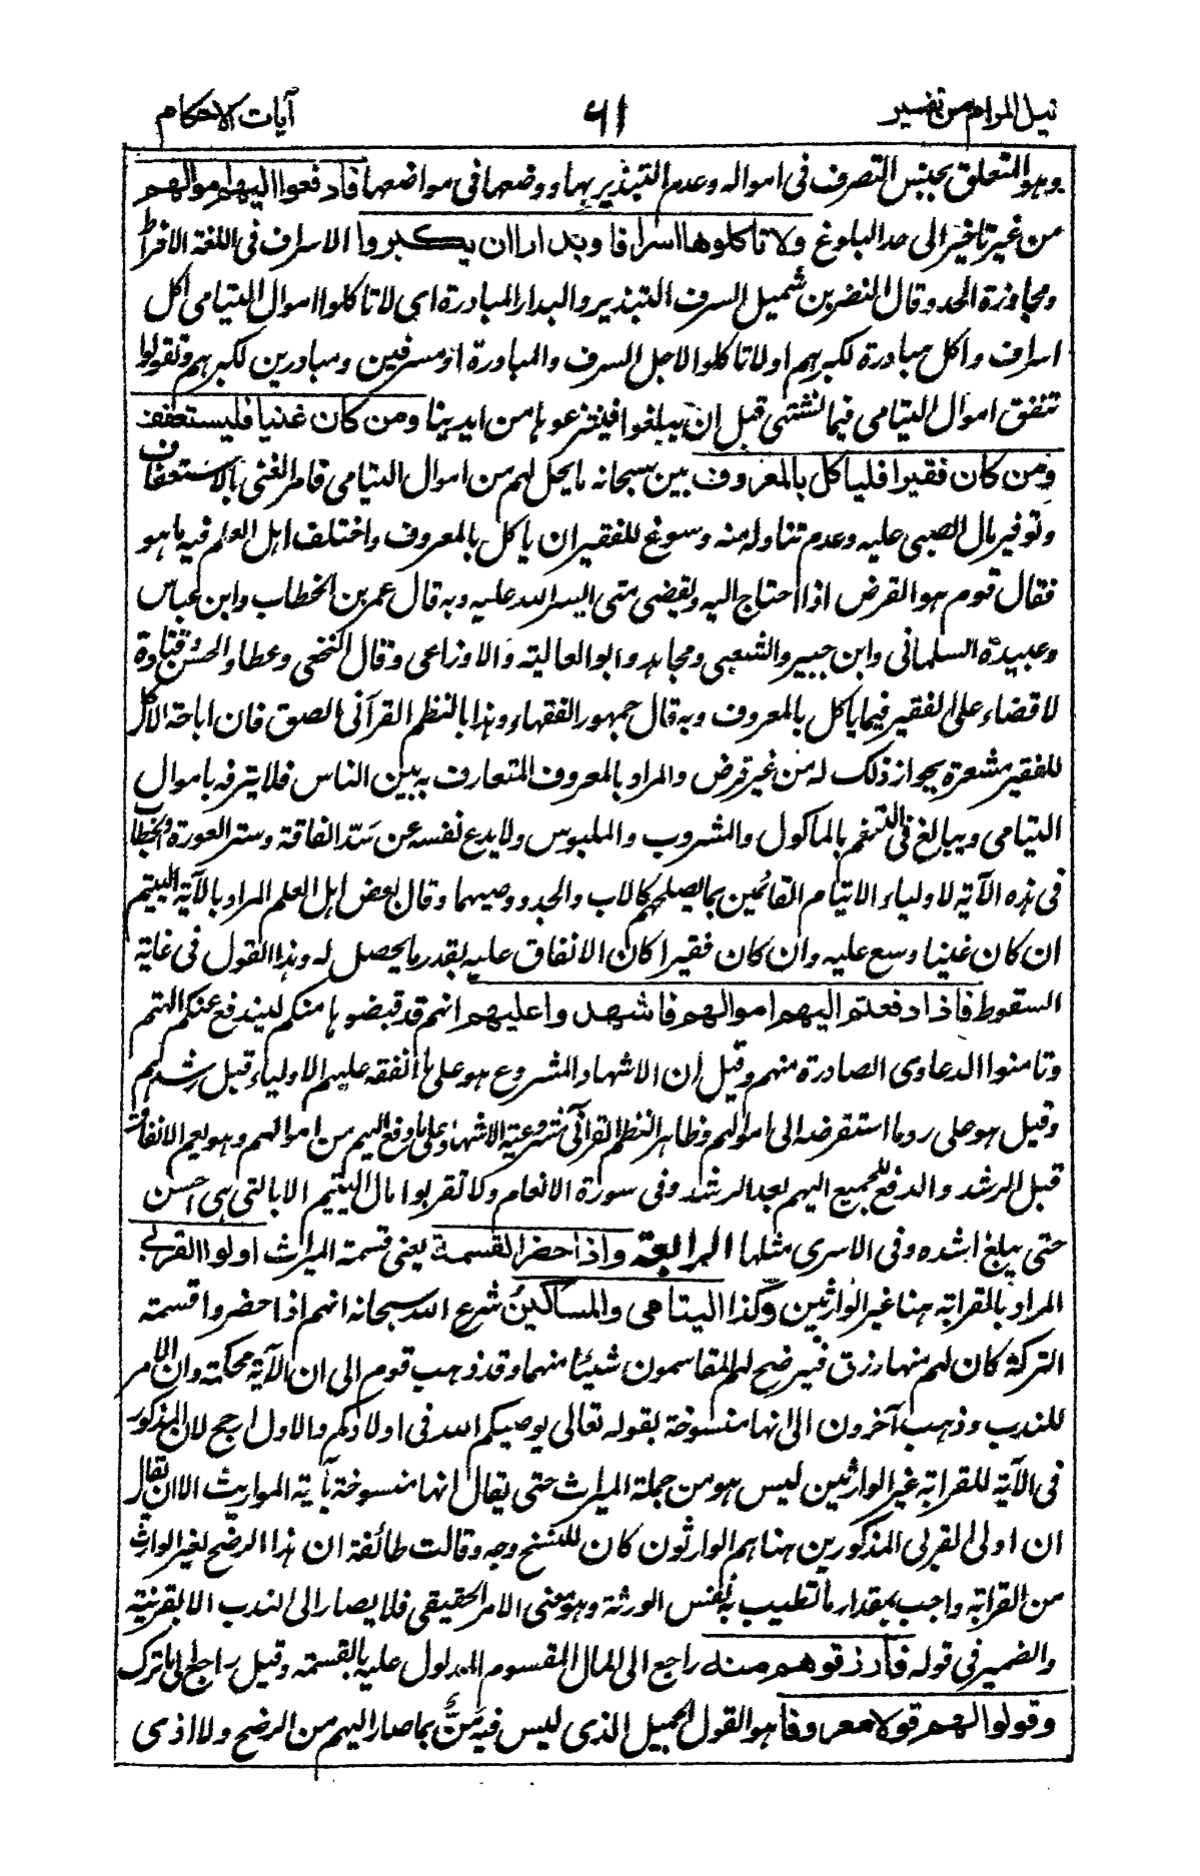 نيل المرام من تفسير
٦١
آيات الاحكام
وهو المتعلق بجنس التصرف فى امواله وعدم التبذير بها ووضعها فى مواضعها فادفعوا اليهم اموالهم
من غير تاخير الى حد البلوغ ولا تاكلوها اسرافا وبدارا ان يكبروا الاسراف فى اللغة الافراط
ومجاوزة الحد وقال النضر بن شميل السرف التبذير والبدار المبادرة اى لا تاكلوا اموال اليتامى اكل
اسراف واكل مبادرة لكبرهم او لا تاكلوا لاجل السرف والمبادرة او مسرفين ومبادرين لكبرهم وتقولوا
تنفق اموال اليتامى فيما نشتهى قبل ان يبلغوا فينتزعوها من ايدينا ومن كان غنيا فليستعفف
ومن كان فقيرا فلياكل بالمعروف بين سبحانه ما يحل لهم من اموال اليتامى فامر الغنى بالاستعفاف
وتوفير مال الصبى عليه وعدم تناوله منه وسوغ للفقير ان ياكل بالمعروف واختلف اهل العلم فيه ما هو
فقال قوم هو القرض اذا احتاج اليه ويقضى متى ايسر الله عليه وبه قال عمر بن الخطاب وابن عباس
وعبيدة السلمانى وابن جبير والشعبى ومجاهد وابو العالية والاوزاعى وقال النخعى وعطاء والحسن وقتادة
لا قضاء على الفقير فيما ياكل بالمعروف وبه قال جمهور الفقهاء وهذا بالنظم القرآنى الصق فان اباحة الاكل
للفقير مشعرة بجواز ذلك له من غير قرض والمراد بالمعروف المتعارف به بين الناس فلا يترفه باموال
اليتامى ويبالغ فى التنعم بالماكول والمشروب والملبوس ولا يدع نفسه عن سد الفاقة وستر العورة والخطاب
فى هذه الآية لاولياء الايتام القائمين بما يصلحهم كالاب والجد ووصيهما وقال بعض اهل العلم المراد بالآية اليتيم
ان كان غنيا وسع عليه وان كان فقيرا كان الانفاق عليه بقدر ما يحصل له وهذا القول فى غاية
السقوط فاذا دفعتم اليهم اموالهم فاشهدوا عليهم انهم قد قبضوها منكم ليندفع عنكم التهم
وتامنوا الدعاوى الصادرة منهم وقيل ان الاشهاد المشروع هو على ما انفقه عليهم الاولياء قبل رشدهم
وقيل هو على رد ما استقرضه الى اموالهم وظاهر النظم القرآنى مشروعية الاشهاد على ما دفع اليهم من اموالهم وهو يعم الانفاق
قبل الرشد والدفع للجميع اليهم بعد الرشد وفى سورة الانعام ولا تقربوا مال اليتيم الا بالتى هى احسن
حتى يبلغ اشده وفى الاسرى مثلها الرابعة واذا حضر القسمة يعنى قسمة الميراث اولوا القربى
المراد بالقرابة هنا غير الوارثين وكذا اليتامى والمساكين شرع الله سبحانه انهم اذا حضروا قسمة
التركة كان لهم منها رزق فيرضخ لهم المقاسمون شيئا منها وقد ذهب قوم الى ان الآية محكمة وان الامر
للندب وذهب آخرون الى انها منسوخة بقوله تعالى يوصيكم الله فى اولادكم والاول ارجح لان المذكور
فى الآية للقرابة غير الوارثين ليس هو من جملة الميراث حتى يقال انها منسوخة بآية المواريث الا ان يقال
ان اولى القربى المذكورين هنا هم الوارثون كان للنسخ وجه وقالت طائفة ان هذا الرضخ لغير الوارث
من القرابة واجب بمقدار ما تطيب به نفس الورثة وهو معنى الامر الحقيقى فلا يصار الى الندب الا بقرينة
والضمير فى قوله فارزقوهم منه راجع الى المال المقسوم المدلول عليه بالقسمة وقيل راجع الى ما ترك
وقولوا لهم قولا معروفا هو القول الجميل الذى ليس فيه منّ بما صار اليهم من الرضخ ولا اذى